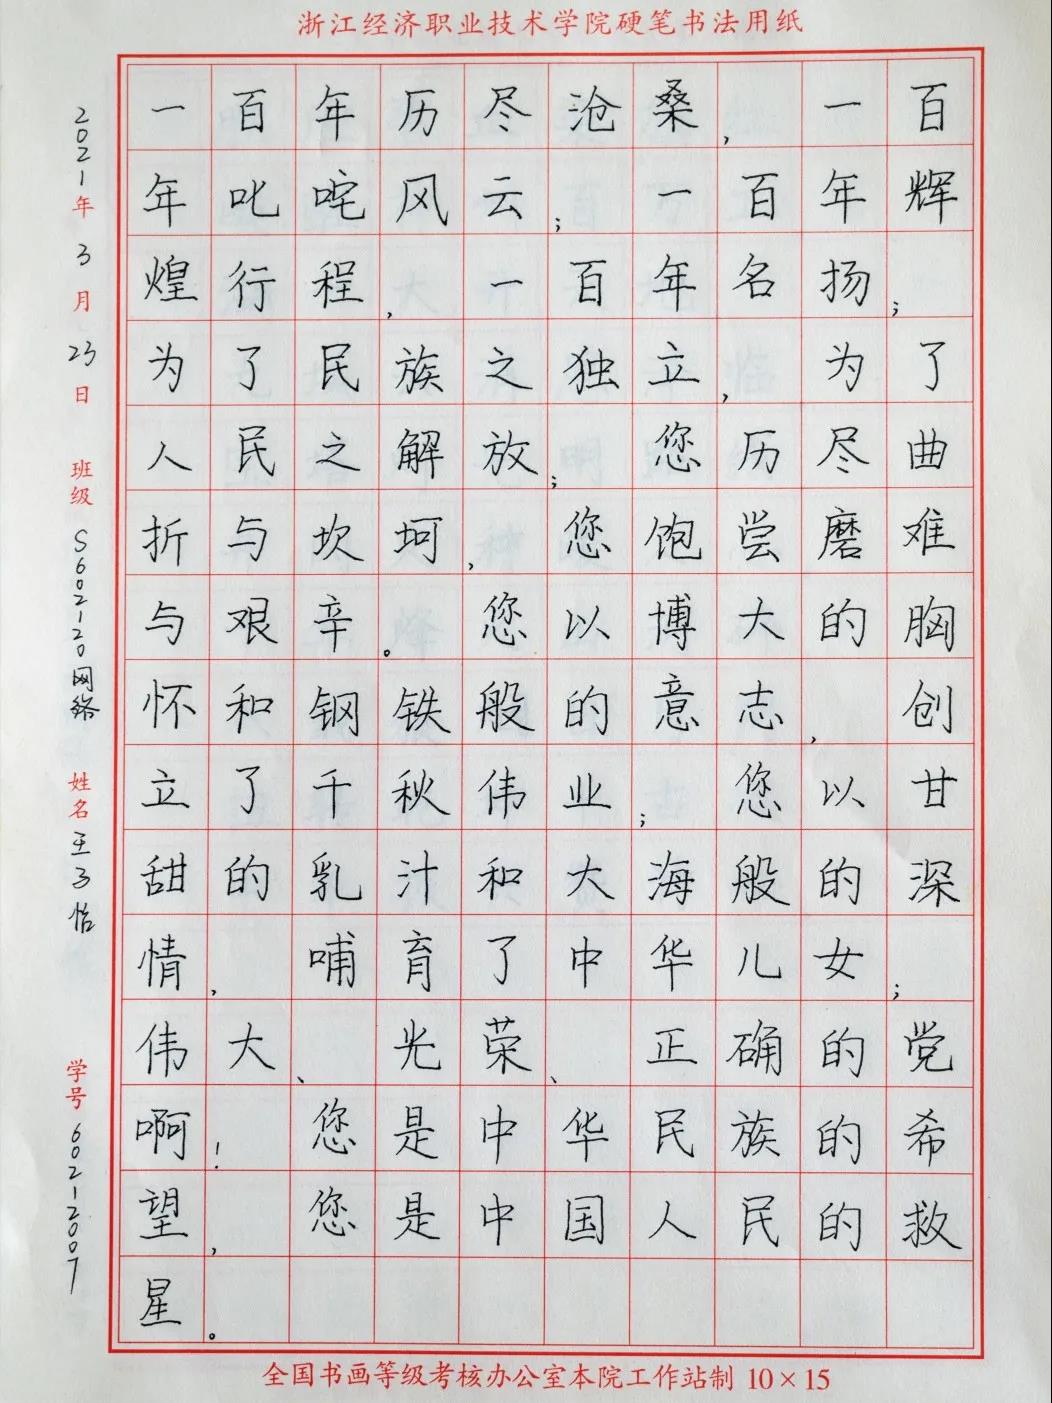 浙江经济职业技术学院硬笔书法用纸
一百年历尽沧桑，一百
年叱咤风云；一百年辉
煌行程，一百年名扬；
为了民族之独立，为了
人民之解放；您历尽曲
折与坎坷，您饱尝磨难
与艰辛。您以博大的胸
怀和钢铁般的意志，创
立了千秋伟业；您以甘
甜的乳汁和大海般的深
情，哺育了中华儿女；
伟大、光荣、正确的党
啊！您是中华民族的希
望，您是中国人民的救
星。
2021年3月23日 班级 S602-20网络 姓名 王子怡 学号 602-2007
全国书画等级考核办公室本院工作站制 10×15